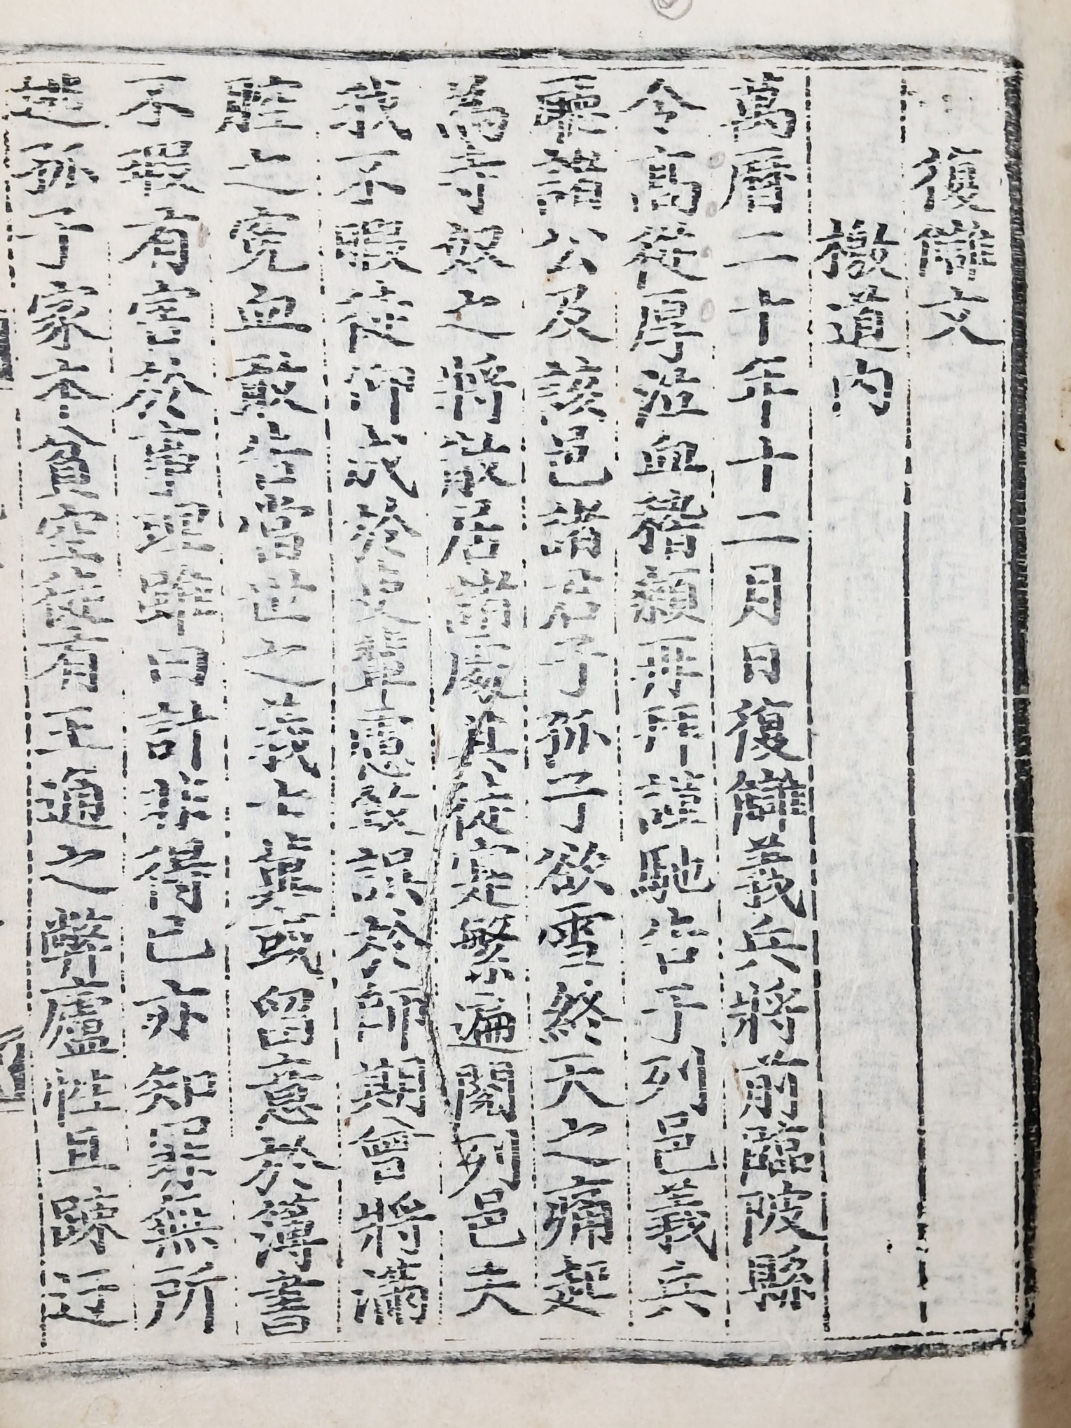 復讎文
檄道內
萬曆二十年十二月日復讎義兵將前臨陂縣
令高從厚泣血稽顙再拜謹馳告于列邑義兵
廳諸公及該邑諸君子孤子欲雪終天之痛起
爲寺奴之將散居諸處其徒寔繁遍閱列邑夫
我不暇徒仰成於吏輩慮致誤於師期曾將滿
腔之寃血敢告當世之義士輩或留意於簿書
不報有害於事理雖由計非得已亦知罪無所
逃孤子家本貧窶徒有王適之弊廬性且踈迂